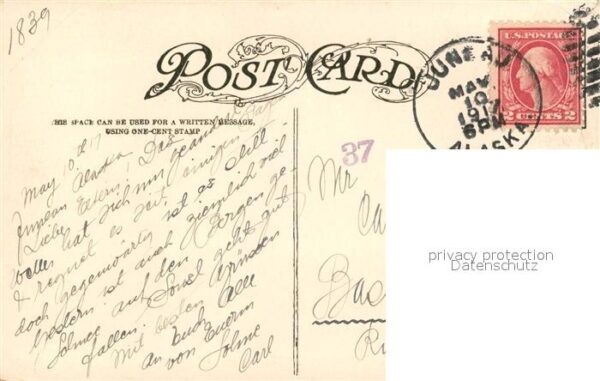 1839
POST CARD
THIS SPACE CAN BE USED FOR A WRITTEN MESSAGE,
USING ONE-CENT STAMP
U.S. POSTAGE
2 CENTS 2
JUNEAU
MAY
10
1917
6 PM
ALASKA
37
May 10, 17
Juneau Alaska
Liebe Eltern! Das
Wetter hat sich nun geändert
& regnet es seit einigen Tag
doch gegenwärtig ist es still
Gestern ist auch ziemlich viel
Schnee auf den Bergen ge-
fallen. Sonst geht gut
Mit besten Grüssen
an Euch Alle
von Euerm Sohne
Carl
Mr
Ca
Bas
privacy protection
Datenschutz